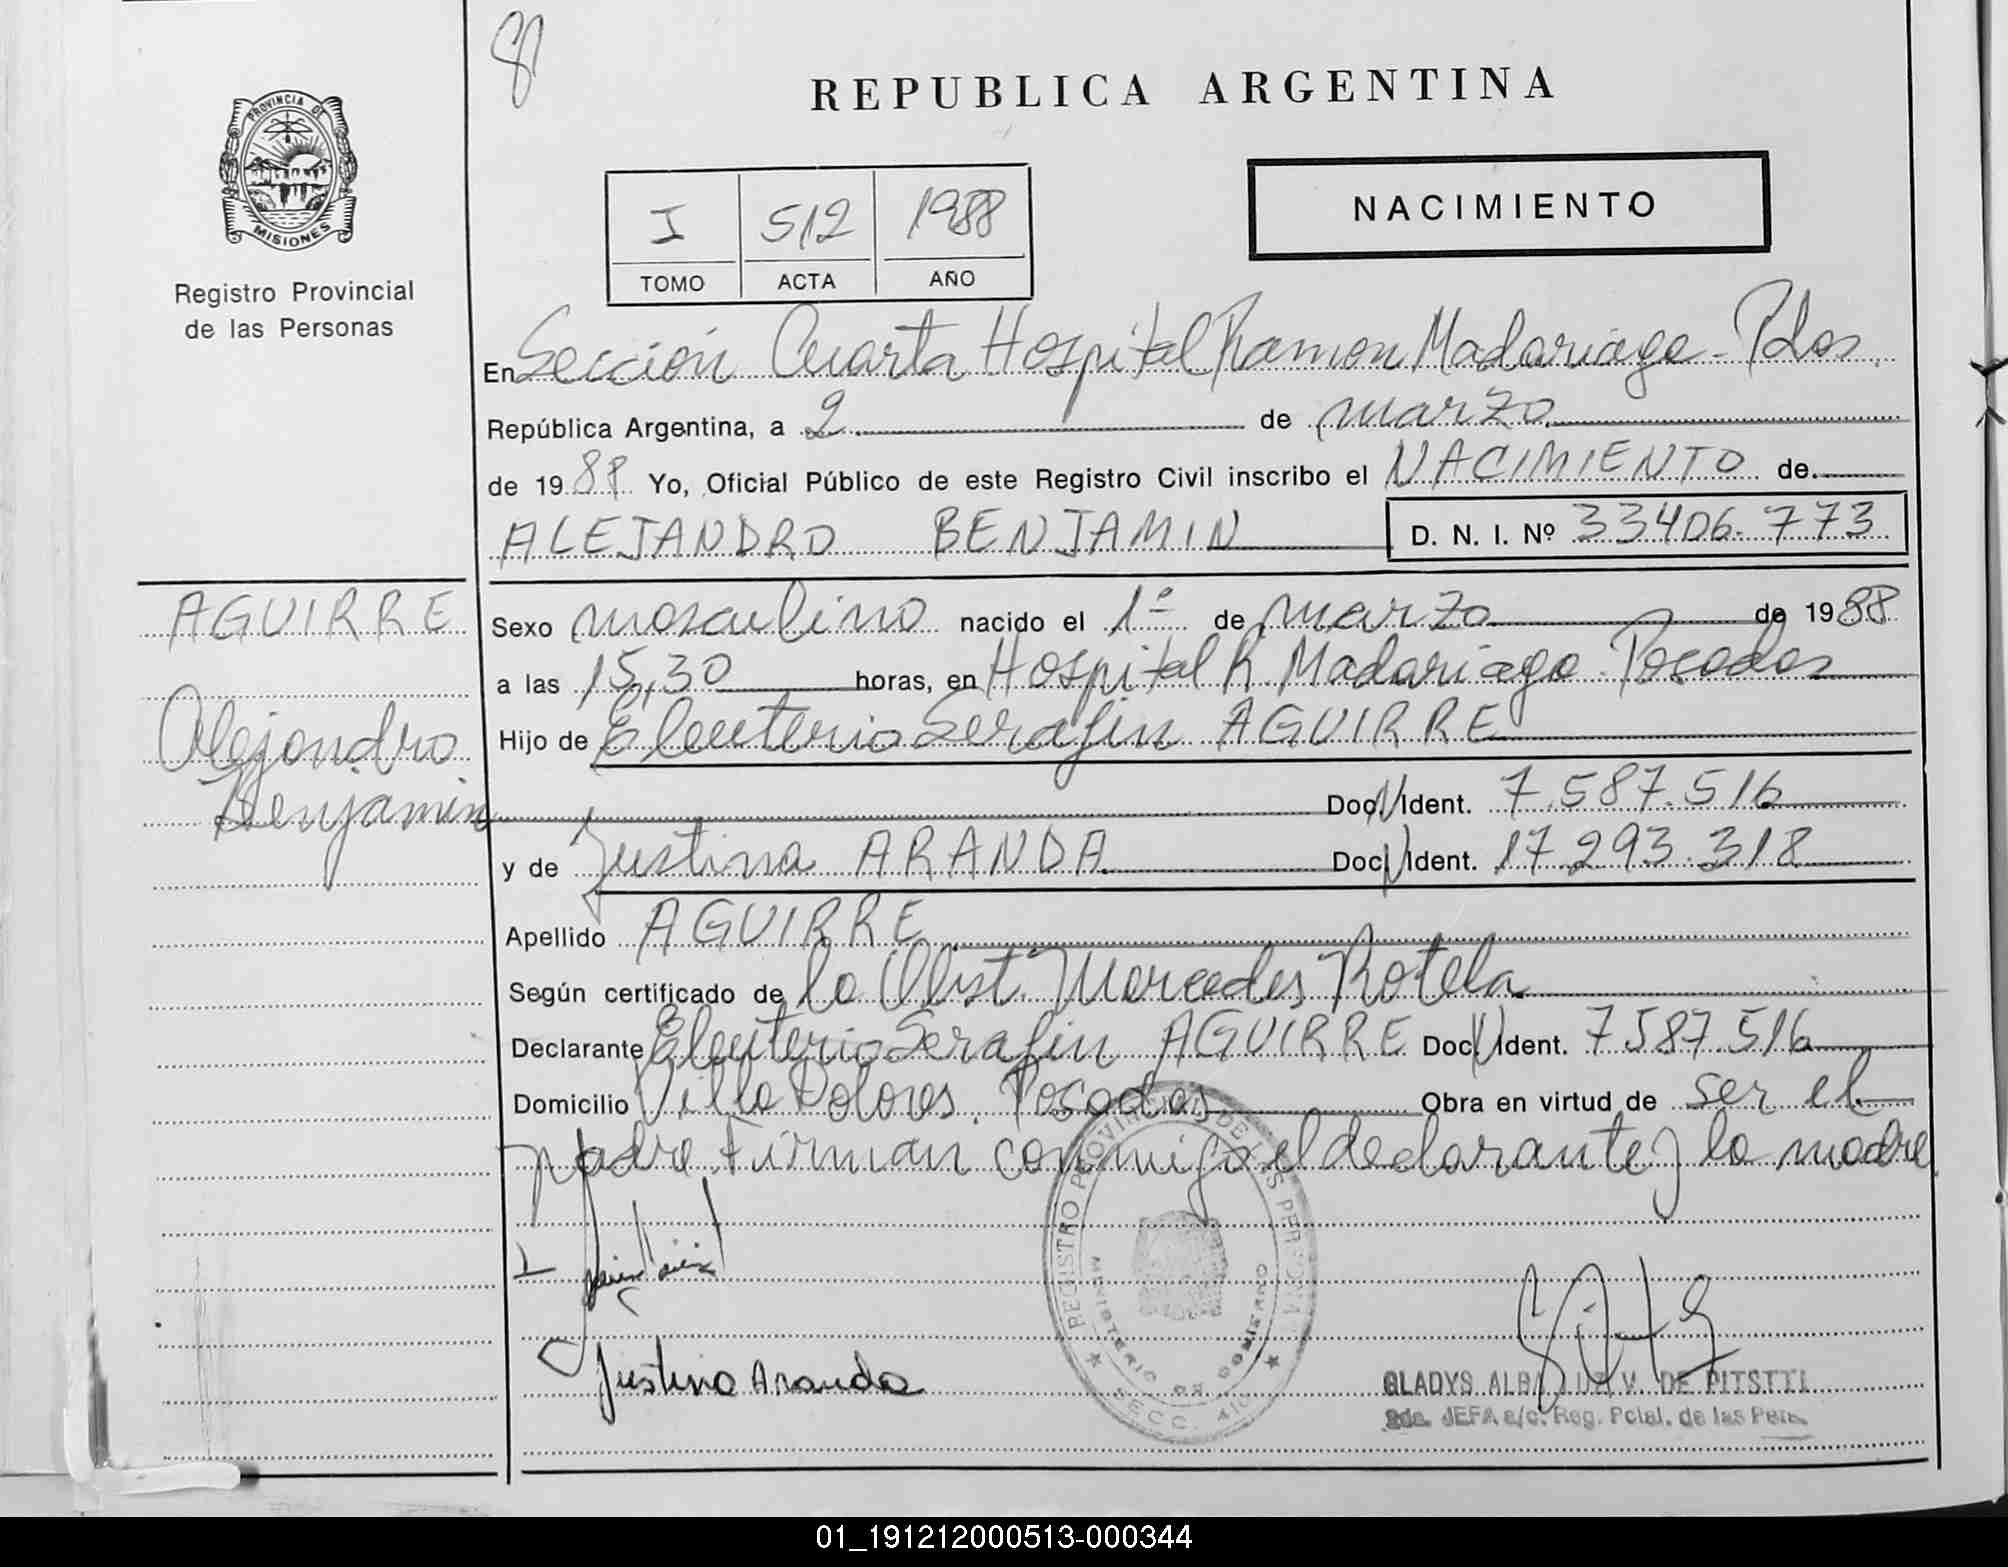 REPUBLICA ARGENTINA
PROVINCIA DE
MISIONES
Registro Provincial
de las Personas
I 512 1988
TOMO ACTA AÑO
NACIMIENTO
En Sección Cuarta Hospital Ramon Madariaga - Pdas
República Argentina, a 2 de marzo
de 1988 Yo, Oficial Público de este Registro Civil inscribo el NACIMIENTO de
ALEJANDRO BENJAMIN D. N. I. Nº 33406.773
AGUIRRE
Alejandro
Benjamin
Sexo masculino nacido el 1º de marzo de 1988
a las 15,30 horas, en Hospital R. Madariaga Posadas
Hijo de Eleuterio Serafin AGUIRRE
Doc. Ident. 7.587.516
y de Justina ARANDA Doc. Ident. 17.293.318
Apellido AGUIRRE
Según certificado de la Obst. Mercedes Rotela
Declarante Eleuterio Serafin AGUIRRE Doc. Ident. 7.587.516
Domicilio Villa Dolores. Posadas Obra en virtud de ser el
padre Firman conmigo el declarante y la madre
REGISTRO PROVINCIAL DE LAS PERSONAS
MINISTERIO DE GOBIERNO
SECC. 4ta
Justina Aranda
GLADYS ALBA V. DE PITSTTI
2da. JEFA a/c. Reg. Pcial. de las Pers.
01_191212000513-000344